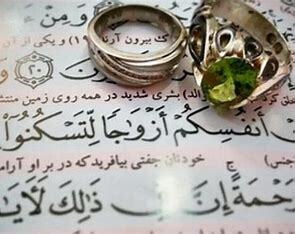 وَمِنْ
ک بیرون آرند (۱۹) و یکی از آن
ونَ ٢٠
بشری شدید در همه روی زمین منتش
أَنفُسِكُمْ أَزْوَاجًا لِتَسْكُنُوا
جنس) خودتان جفتی بیافریدکه در بر او آرام
حْمَةً إِنَّ فِي ذَلِكَ لَآيَا